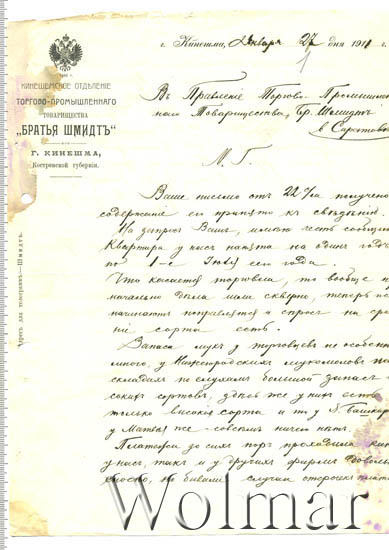 КИНЕШЕМСКОЕ ОТДѢЛЕНІЕ
ТОРГОВО-ПРОМЫШЛЕННАГО
ТОВАРИЩЕСТВА
„БРАТЬЯ ШМИДТЪ“
Г. КИНЕШМА,
Костромской губерніи.
Адресъ для телеграммъ—Шмидтъ.
г. Кинешма, Января 27 дня 1910 г.
Въ Правленіе Торгово Промышлен
наго Товарищества, Бр. Шмидтъ
в Саратовѣ
М. Г.
Ваше письмо отъ 22 получено
содержаніе его принято къ свѣдѣнію.
На запросъ Вашъ, имѣю честь сообщить
Квартира у насъ нанята на одинъ годъ
по 1-е Іюля сего года.
Что касается торговли, то вообще
начально дѣла шли скверно, теперь
начинаютъ поправляться и спросъ на
сорта есть.
Запаса муки у торговцевъ не особенно
много, у Нижегородскихъ мукомоловъ
складахъ по слухамъ большой запасъ
сортовъ, здѣсь же у нихъ есть
только высокіе сорта и то у Башкир
у Матвѣя же совсѣмъ ничего нѣтъ.
Платежи до сихъ поръ проходили
у насъ, такъ и у другихъ фирмъ доволь
но бывали случаи отсрочки
Wolmar